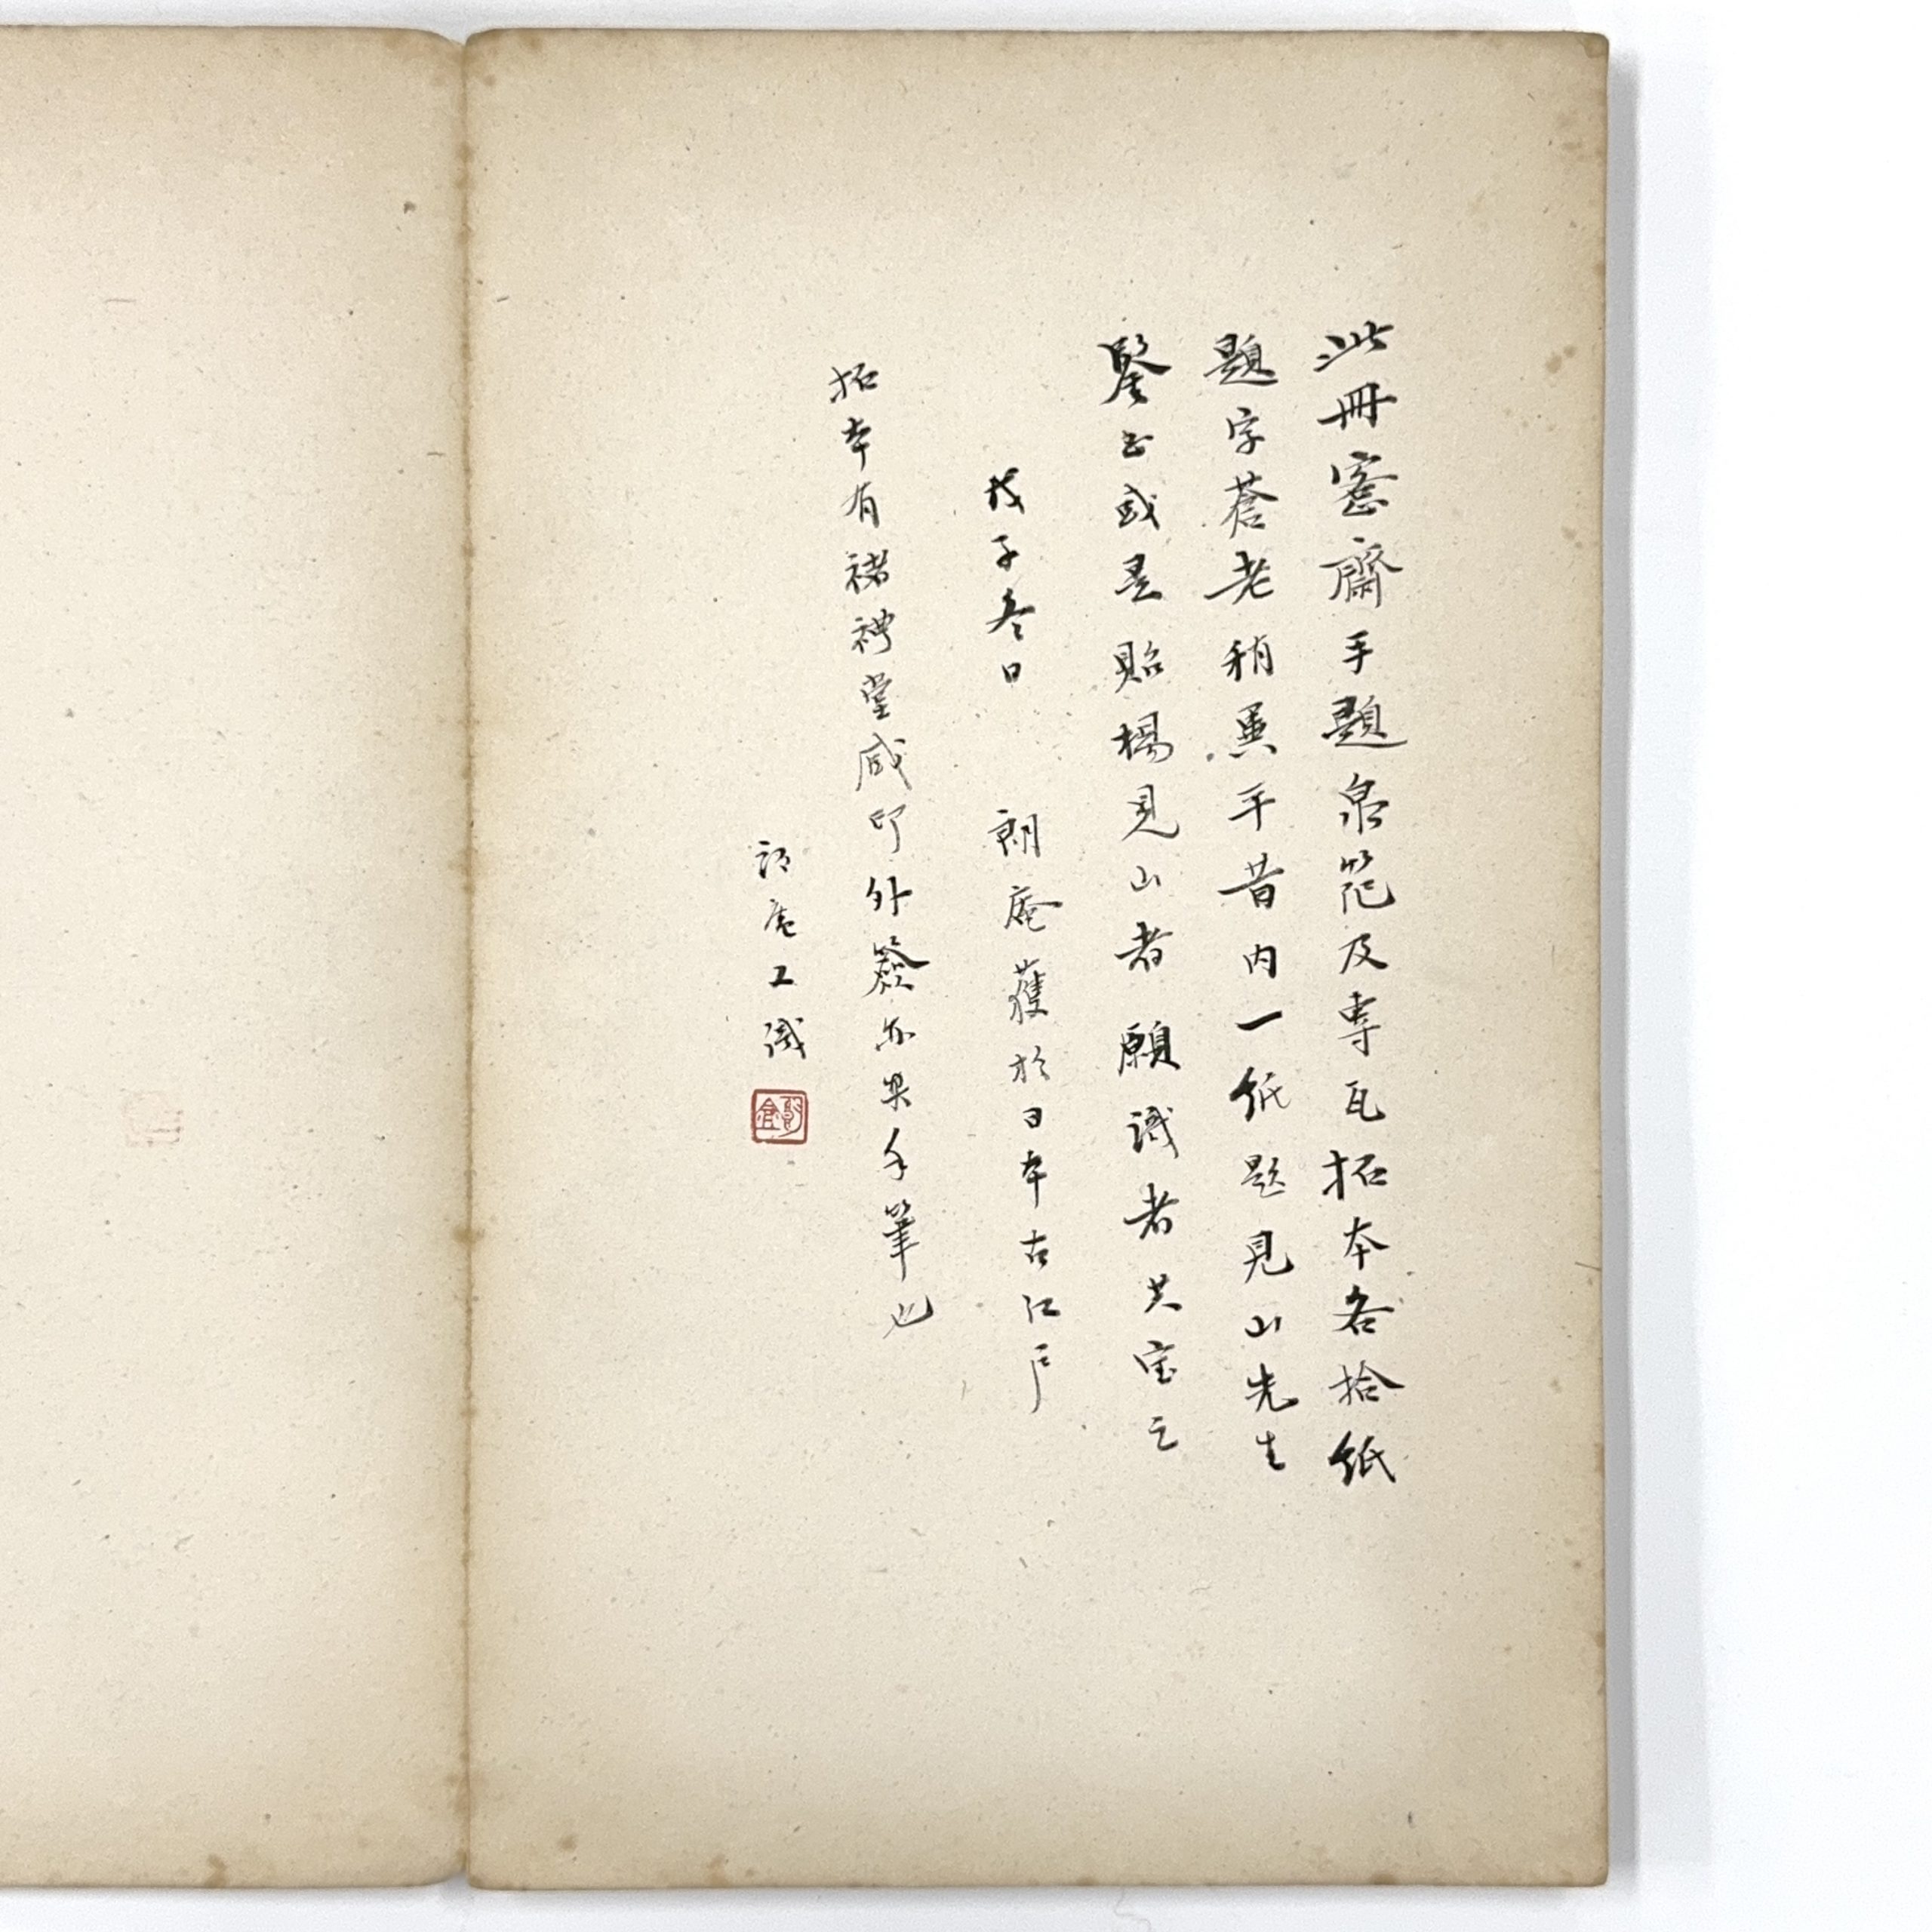 此冊愙齋手題泉笵及專瓦拓本各拾紙
題字蒼老稍異平昔内一紙題見山先生
鑒正或是貽楊見山者願識者共宝之
戊子冬日 朗庵獲於日本古江户
拓本有褚禮堂咸印外簽亦是手筆也
朗庵又識